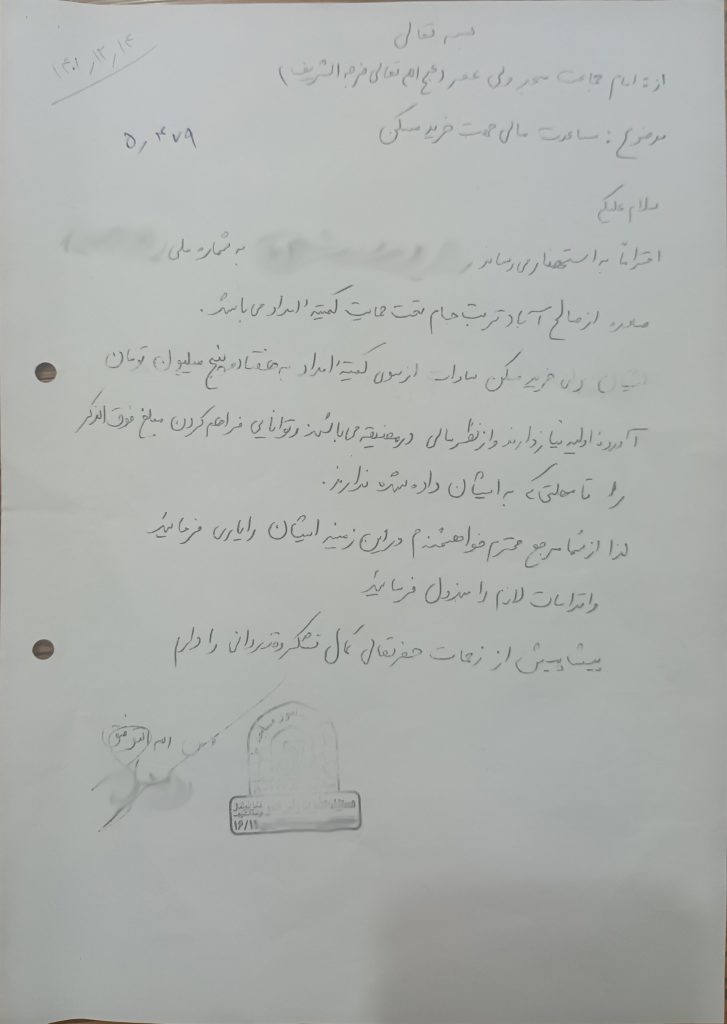 بسمه تعالی
۱۴۰۱٫۱۲٫۱۴
از: امام جماعت مسجد ولی عصر (عج اله تعالی فرجه الشریف)
موضوع: مساعدت مالی جهت خرید مسکن
۵٫۴۷۹
سلام علیکم
احتراماً به استحضار می‌رساند به شماره ملی
صادره از صالح آباد تربت جام تحت حمایت کمیتهٔ امداد می باشد.
ایشان برای خرید مسکن سادات از سوی کمیتهٔ امداد به هفتاد و پنج میلیون تومان
آورده اولیه نیاز دارند و از نظر مالی در مضیقه می باشند و توانایی فراهم کردن مبلغ فوق الذکر
را تا مهلتی که به ایشان داده شده ندارند.
لذا از شما مرجع محترم خواهشمندم در این زمینه ایشان را یاری فرمائید
و اقدامات لازم را مبذول فرمائید
پیشاپیش از زحمات حضرتعالی کمال تشکر و قدردانی را دارم
و من اله التوفیق
امور مساجد
۱۶/۱۱